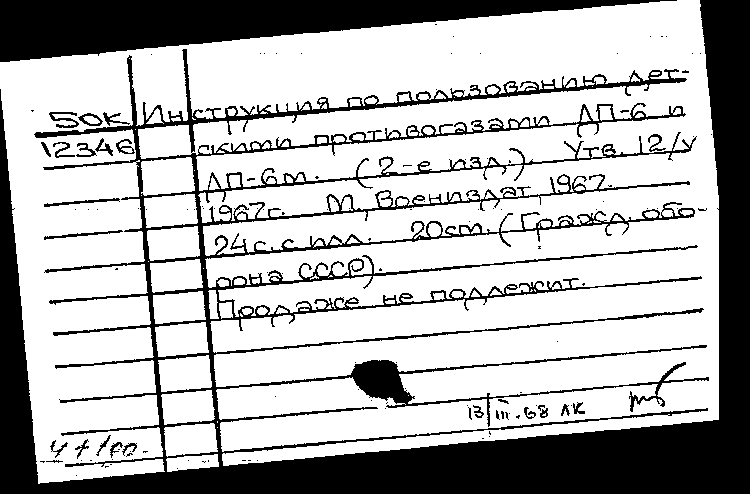 50к Инструкция по пользованию дет-
12346 скими противогазами ДП-6 и
ДП-6м. (2-е изд.). Утв. 12/V
1967г. М, Воениздат, 1967.
24с. с илл. 20см. (Гражд. обо-
рона СССР).
Продаже не подлежит.
13/III.68 ЛК